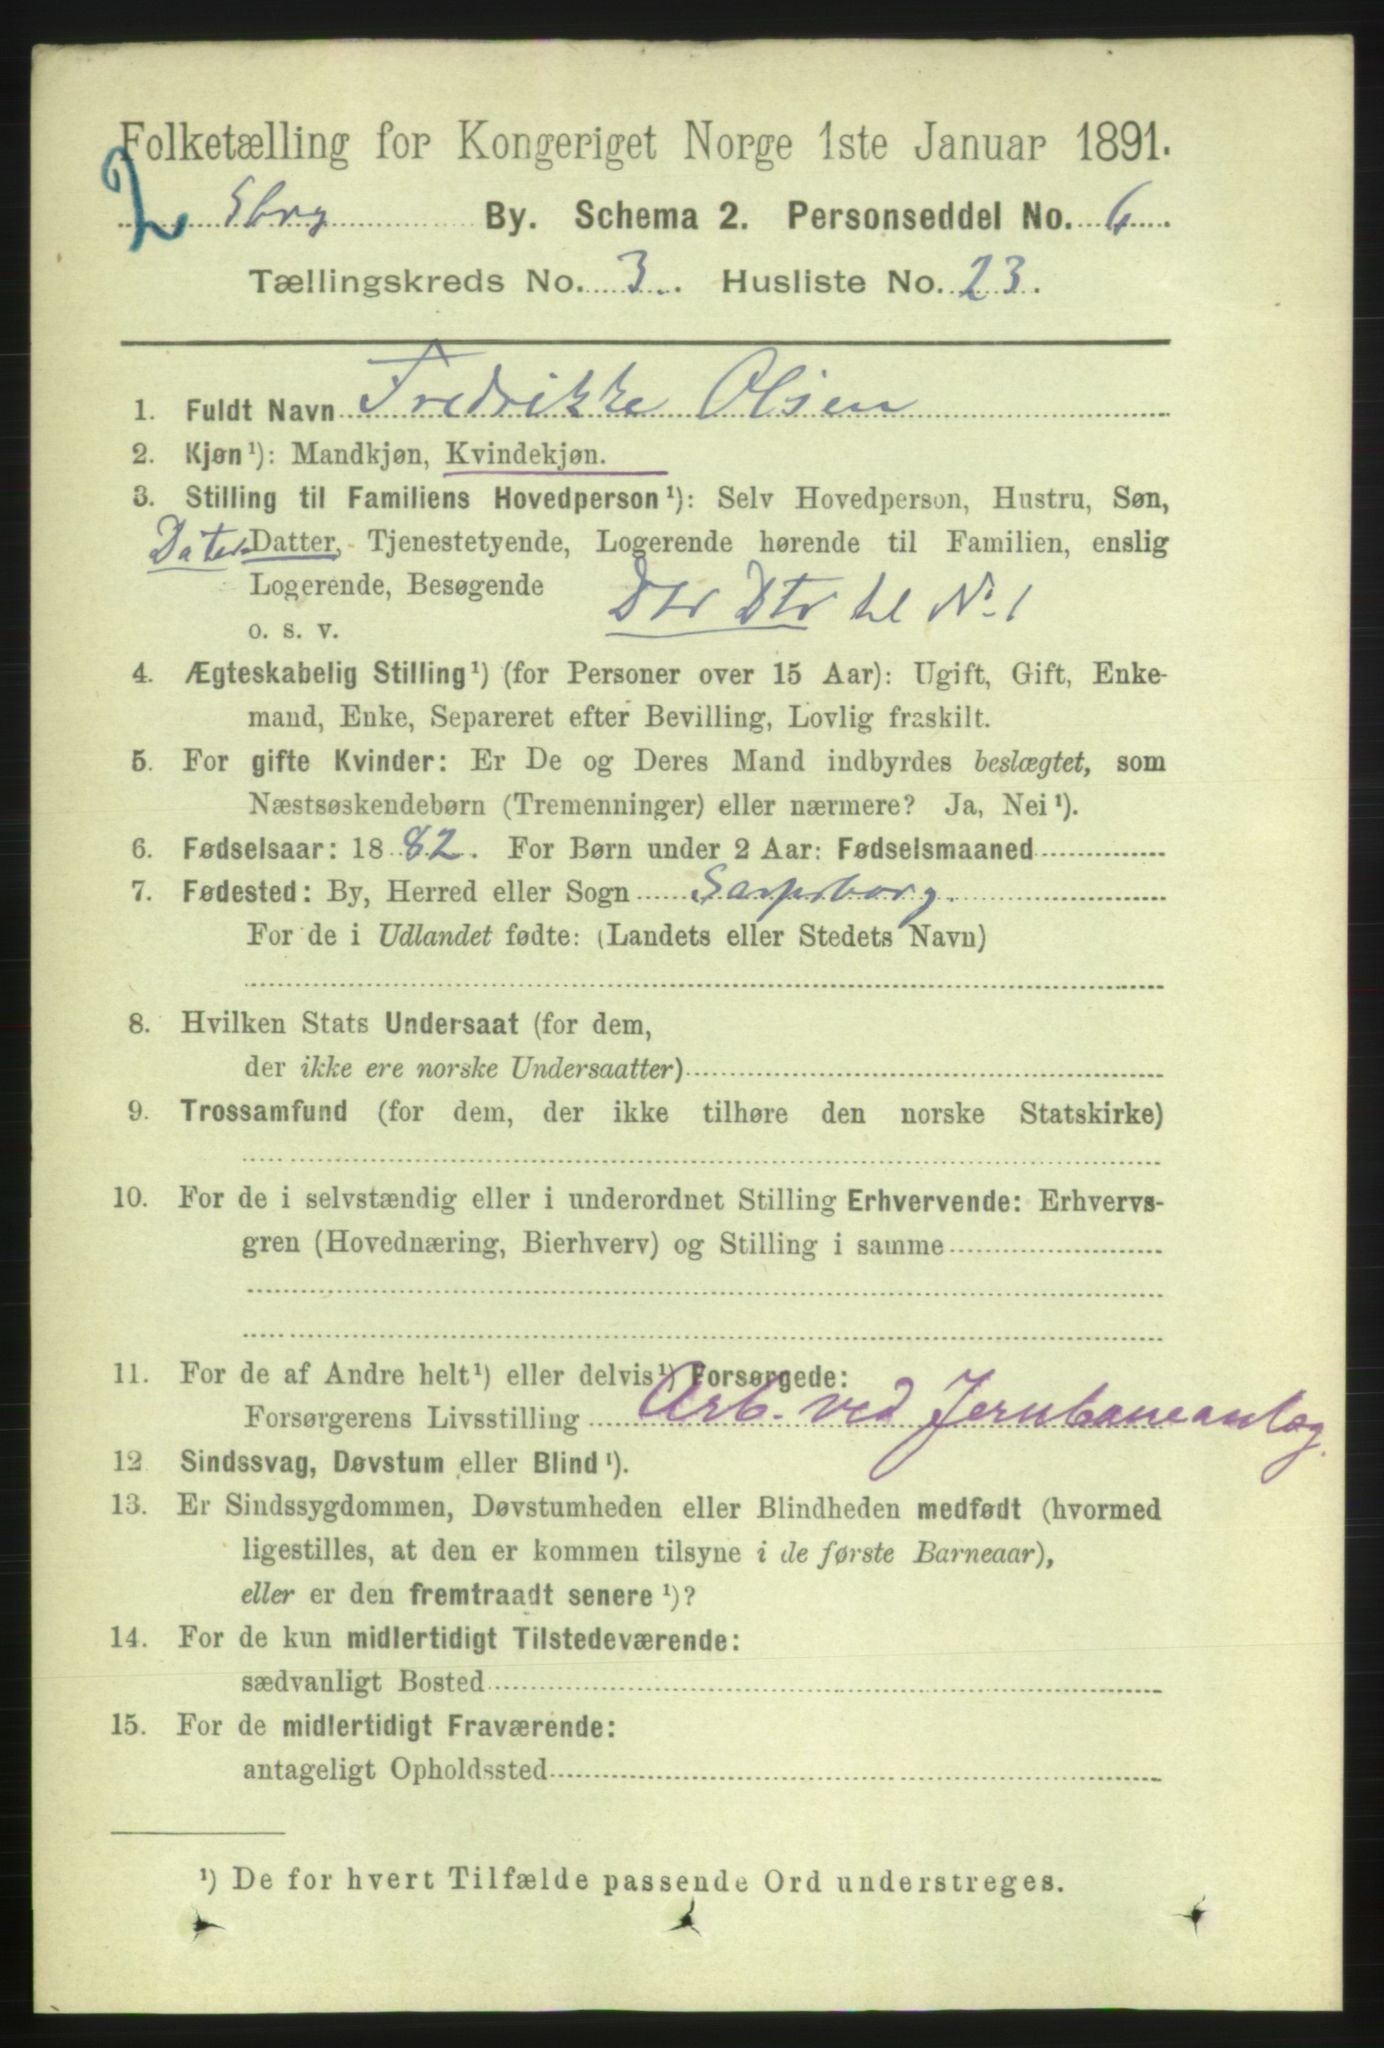 Folketælling for Kongeriget Norge 1ste Januar 1891.
2 Sbrg By. Schema 2. Personseddel No. 6
Tællingskreds No. 3. Husliste No. 23.
1. Fuldt Navn Fredrikke Olsen
2. Kjøn¹): Mandkjøn, Kvindekjøn.
3. Stilling til Familiens Hovedperson¹): Selv Hovedperson, Hustru, Søn,
Daters Datter, Tjenestetyende, Logerende hørende til Familien, enslig
Logerende, Besøgende Dtr Dtr til No 1
o. s. v.
4. Ægteskabelig Stilling¹) (for Personer over 15 Aar): Ugift, Gift, Enke-
mand, Enke, Separeret efter Bevilling, Lovlig fraskilt.
5. For gifte Kvinder: Er De og Deres Mand indbyrdes beslægtet, som
Næstsøskendebørn (Tremenninger) eller nærmere? Ja, Nei¹).
6. Fødselsaar: 1882. For Børn under 2 Aar: Fødselsmaaned
7. Fødested: By, Herred eller Sogn Sarpsborg.
For de i Udlandet fødte: (Landets eller Stedets Navn)
8. Hvilken Stats Undersaat (for dem,
der ikke ere norske Undersaatter)
9. Trossamfund (for dem, der ikke tilhøre den norske Statskirke)
10. For de i selvstændig eller i underordnet Stilling Erhvervende: Erhvervs-
gren (Hovednæring, Bierhverv) og Stilling i samme
11. For de af Andre helt¹) eller delvis¹) Forsørgede:
Forsørgerens Livsstilling Arb. ved Jernbaneanlæg.
12 Sindssvag, Døvstum eller Blind¹).
13. Er Sindssygdommen, Døvstumheden eller Blindheden medfødt (hvormed
ligestilles, at den er kommen tilsyne i de første Barneaar),
eller er den fremtraadt senere¹)?
14. For de kun midlertidigt Tilstedeværende:
sædvanligt Bosted
15. For de midlertidigt Fraværende:
antageligt Opholdssted
¹) De for hvert Tilfælde passende Ord understreges.